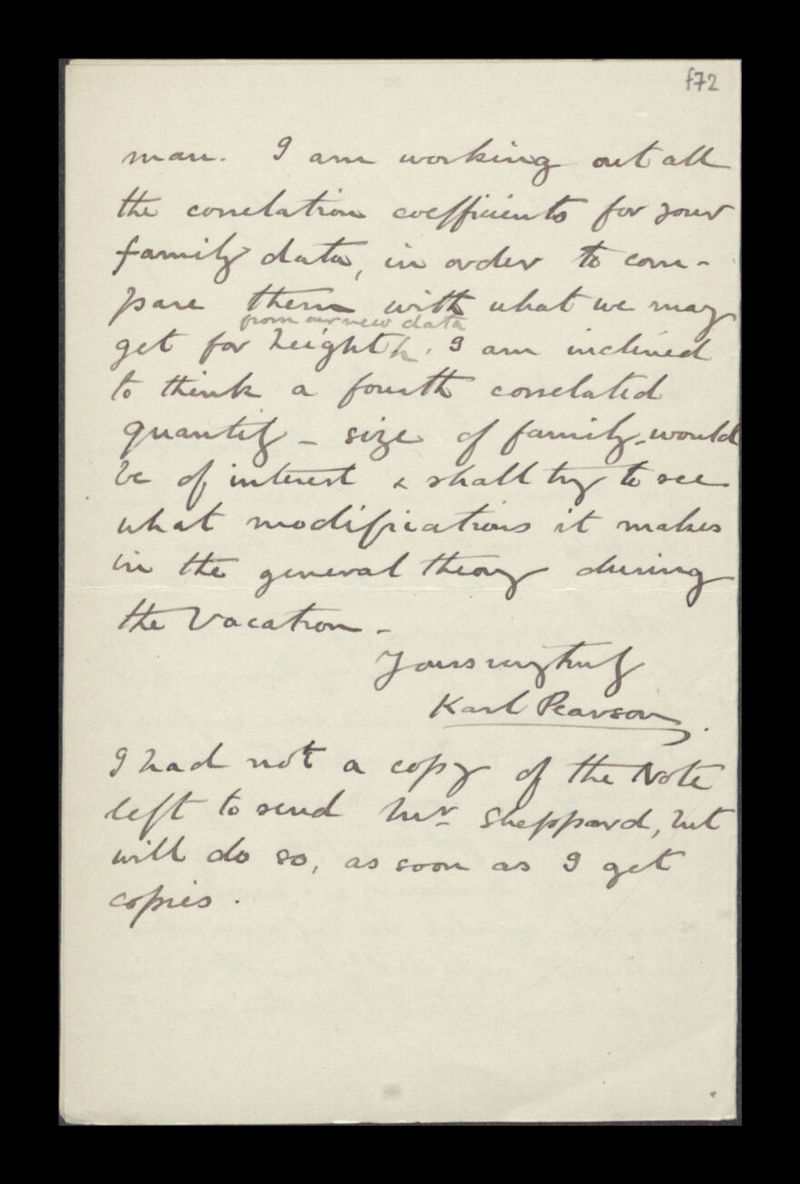 f72
man. I am working out all
the correlation coefficients for your
family data, in order to com-
pare them with what we may
from our new data
get for height. I am inclined
to think a fourth correlated
quantity - size of family - would
be of interest & shall try to see
what modifications it makes
in the general theory during
the Vacation -
Yours very truly
Karl Pearson.
I had not a copy of the Note
left to send Mr Sheppard, but
will do so, as soon as I get
copies.